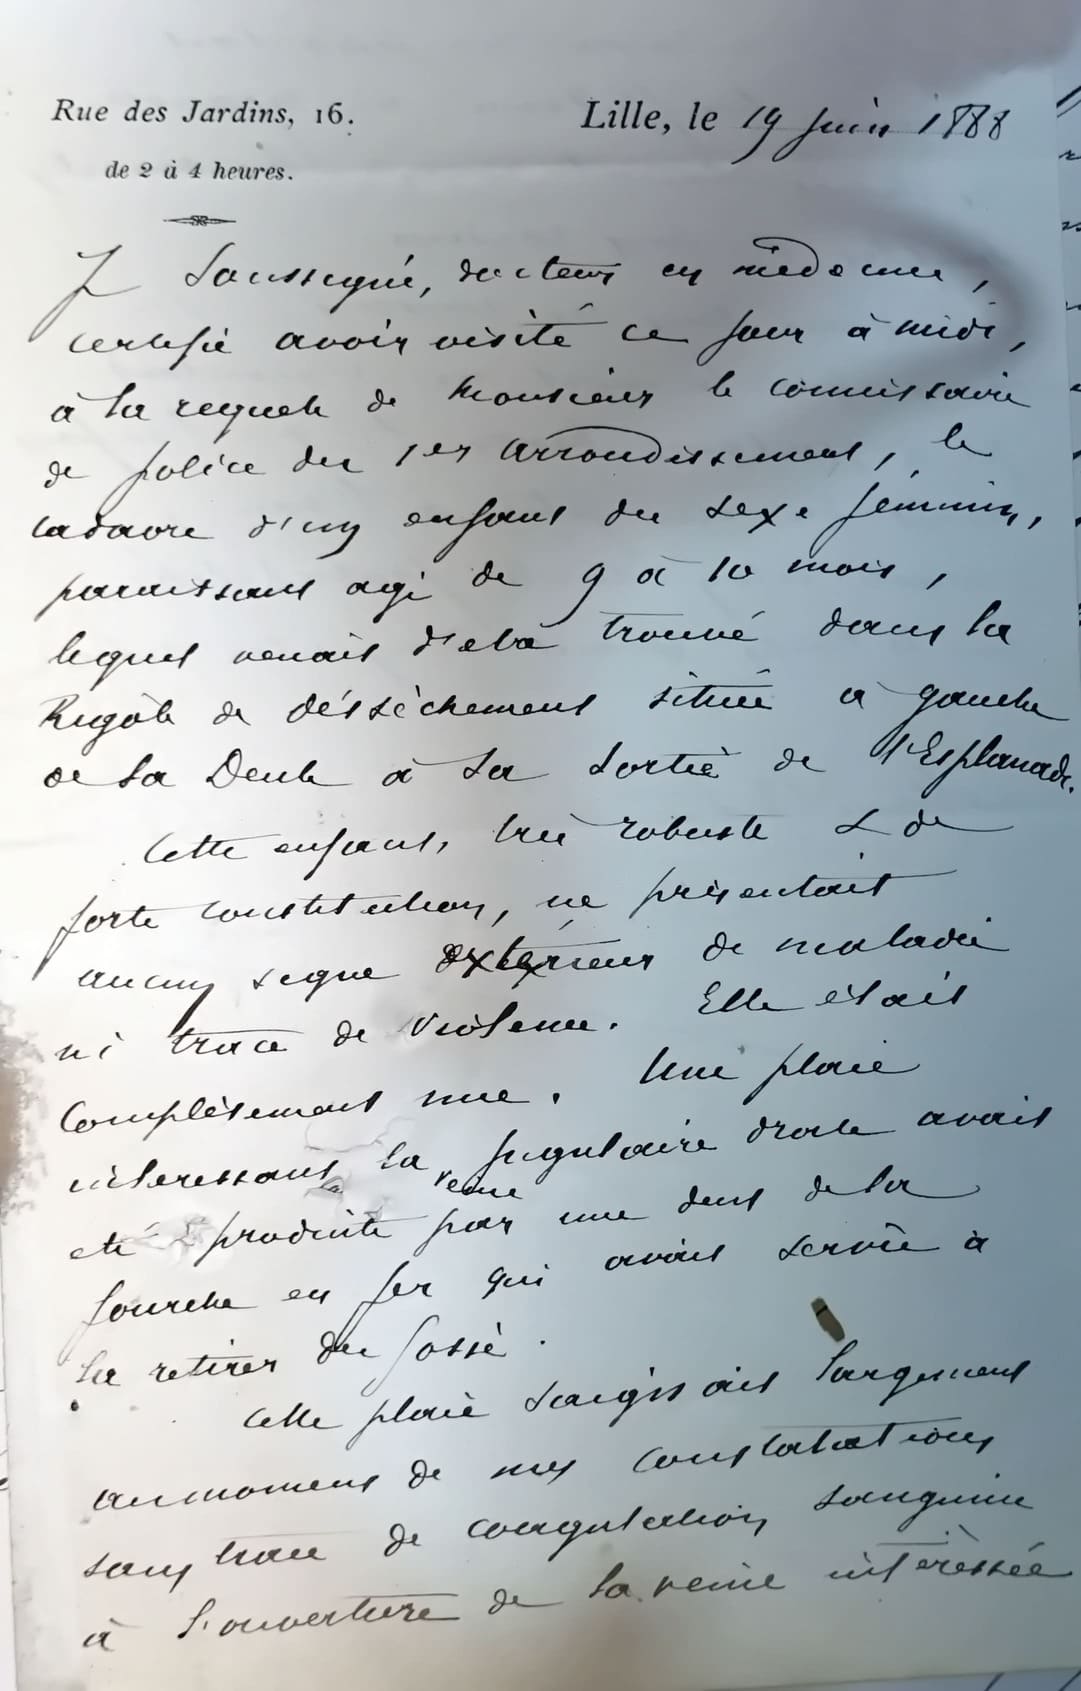 Rue des Jardins, 16.
Lille, le 19 juin 1888
de 2 à 4 heures.
Je soussigné, docteur en médecine,
certifie avoir visité ce jour à midi,
à la requête de Monsieur le commissaire
de police du 1er arrondissement, le
cadavre d'un enfant du sexe féminin,
paraissant agé de 9 à 10 mois,
lequel venait d'etre trouvé dans la
Rigole de déssèchement située à gauche
de la Deule à la sortie de l'Esplanade.
Cette enfant, très robuste & de
forte constitution, ne présentait
aucun signe extérieur de maladie
ni trace de violence. Elle était
complètement nue. Une plaie
intéressant la veine jugulaire droite avait
été produite par une dent de la
fourche en fer qui avait servie à
la retirer du fossé.
Cette plaie saignait largement
au moment de mes constatations
sans trace de coagulation sanguine
à l'ouverture de la veine intéressée